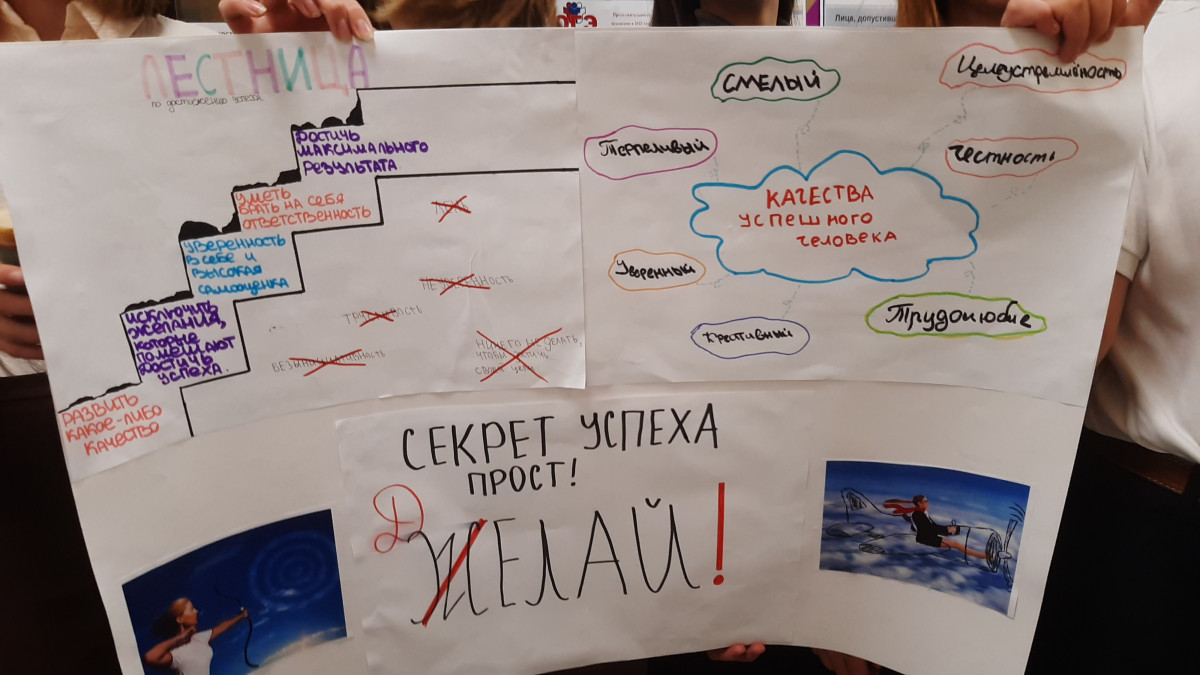 Лица, допустивш
ЛЕСТНИЦА
по достижению успеха
ДОСТИЧЬ
МАКСИМАЛЬНОГО
РЕЗУЛЬТАТА
УМЕТЬ
БРАТЬ НА СЕБЯ
ОТВЕТСТВЕННОСТЬ
УВЕРЕННОСТЬ
В СЕБЕ И
ВЫСОКАЯ
САМООЦЕНКА
ИСКЛЮЧИТЬ
ЖЕЛАНИЯ,
КОТОРЫЕ
ПОМЕШАЮТ
ДОСТИЧЬ
УСПЕХА.
РАЗВИТЬ
КАКОЕ-ЛИБО
КАЧЕСТВО
ЛЕНЬ
НЕУВЕРЕННОСТЬ
БЕЗЫНИЦИАТИВНОСТЬ
НИЧЕГО НЕ ДЕЛАТЬ,
ЧТОБЫ ДОСТИЧЬ
СВОЕЙ ЦЕЛИ
СМЕЛЫЙ
Целеустремлённость
Терпеливый
Честность
КАЧЕСТВА
УСПЕШНОГО
ЧЕЛОВЕКА
Уверенный
Креативный
Трудолюбие
СЕКРЕТ УСПЕХА
ПРОСТ!
Д
ЖЕЛАЙ!